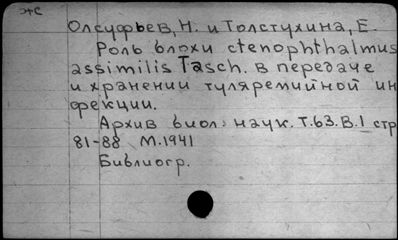 ЭС
Олсуфьев, Н. и Толстухина, Е.
Роль блохи ctenophthalmus
assimilis Tasch. в передаче
и хранении туляремийной ин
фекции.
Архив биол. наук. Т.63. В.1 стр
81-88 М.1941
Библиогр.